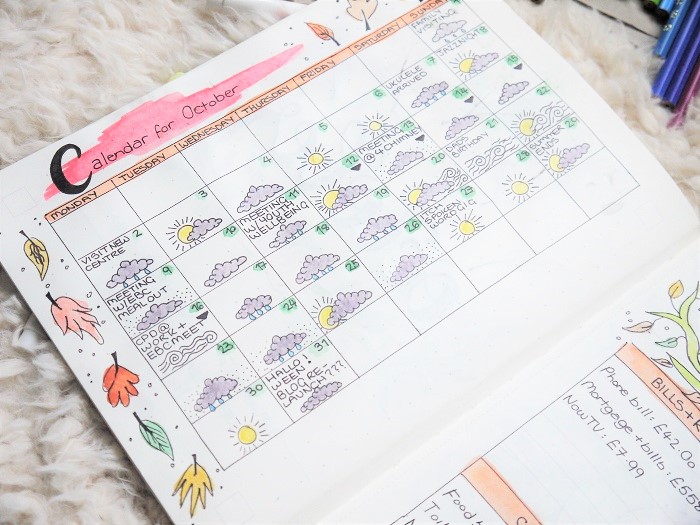 Calendar for October
MONDAY TUESDAY WEDNESDAY THURSDAY FRIDAY SATURDAY SUNDA
FAMILY
VISITING
2
VISIT NEW
CENTRE
3
4
5
6
7
UKULELE
ARRIVED
8
9
MEETING
W/EBC
MEAL OUT
10
11
MEETING
W. YOUTH
WELLBEING
12
13
MEETING
@ 4 CHIMNEY
14
15
16
CPD @
WORK +
EBC MEET
17
19
20
DADS
BIRTHDAY
21
22
23
24
25
26
28
29
30
31
HALLO
WEEN!
BLOG RE
LAUNCH???
BILLS +
Phone bill: £42.00
Mortgage + bills: £55
Now TV: £7.99
Food